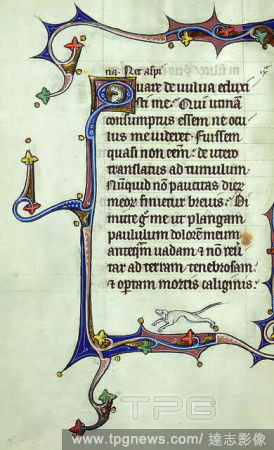 na. Ner aspi
Quare de uulua eduxi
sti me. Qui utinam
consumptus essem ne ocu
lus me uideret. Fuissem
quasi non essem de utero
translatus ad tumulum
Nunquid non paucitas dier
meor finietur breuis. Di
mitte g me ut plangam
paululum dolorem meum
anteqm uadam & non reu
tar ad terram tenebrosam
& optam mortis caligine.
TPG
www.tpgnews.com / 達志影像